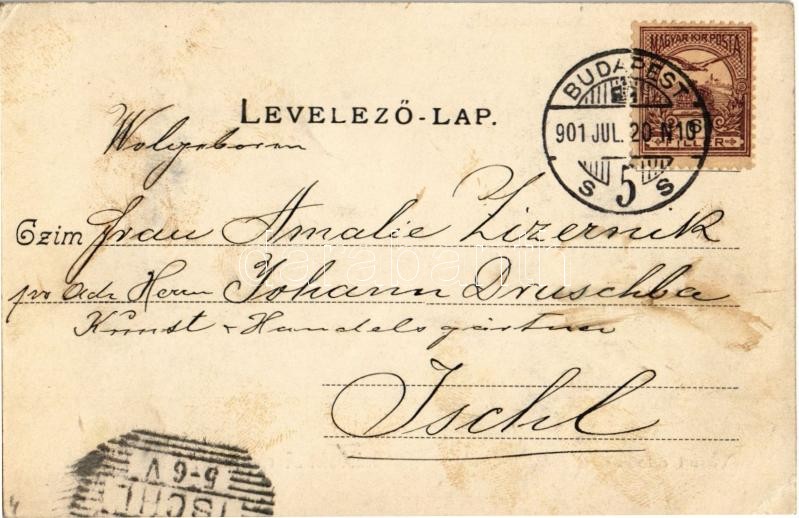 MAGYAR KIR. POSTA
BUDAPEST
LEVELEZŐ-LAP.
901 JUL. 20 N10
FILLÉR
Wolgeboren
S 5 S
Czim Frau Amalie Zizernik
pr Adr Herrn Johann Druschba
Kunst & Handelsgärtner
Ischl
ISCHL
5-6 V